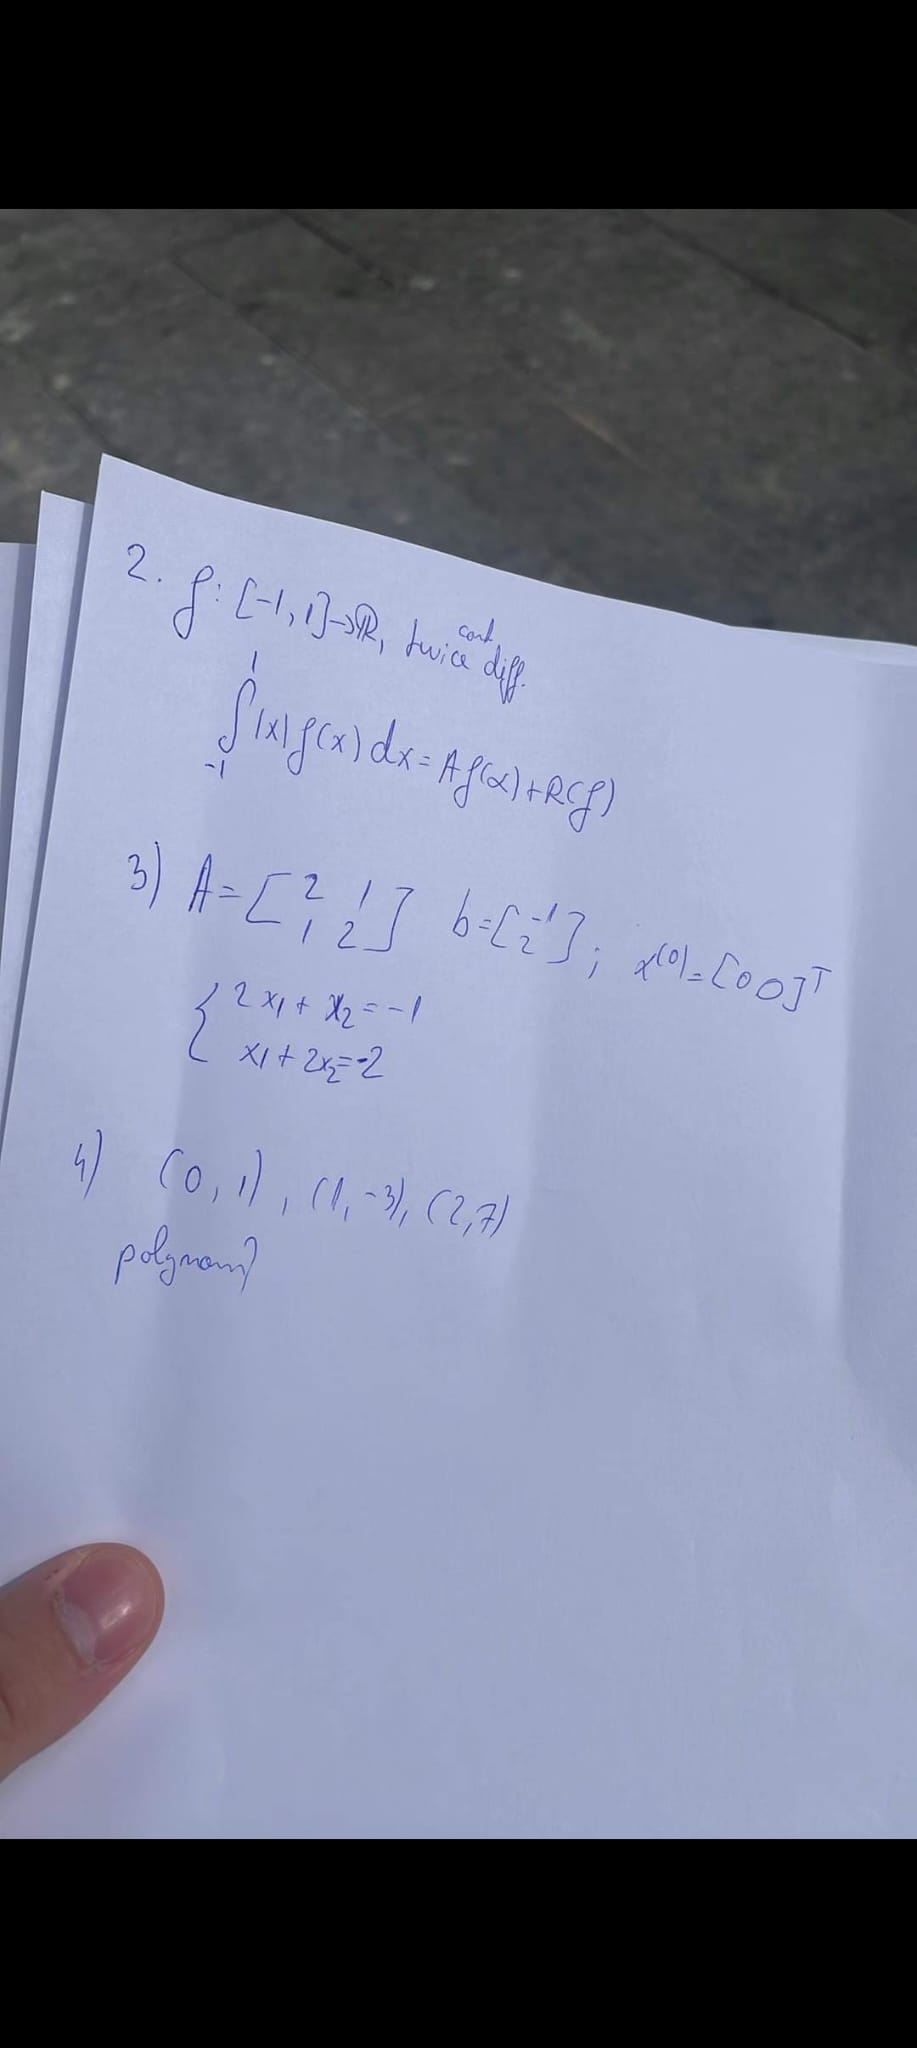 2. f: [-1, 1]→ℝ, twice cont diff.
∫₋₁¹ |x| f(x) dx = A f(α) + R(f)
3) A = [2 1; 1 2] b = [-1; 2]; x⁽⁰⁾ = [0 0]ᵀ
{ 2x₁ + x₂ = -1
x₁ + 2x₂ = -2
4) (0, 1), (1, -3), (2, 7)
polynom?